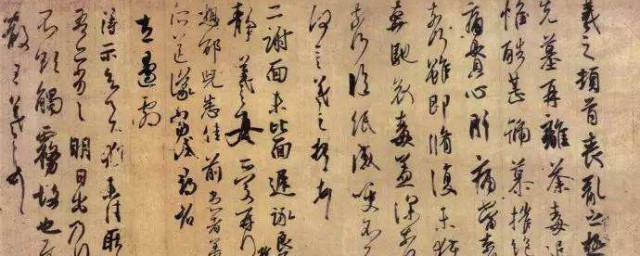 羲之頓首喪亂之極
先墓再離荼毒追
惟酷甚號慕摧絕
痛貫心肝痛當奈
奈何雖即脩復未獲
奔馳哀毒益深奈
奈何臨紙感哽不
何言羲之頓首
二謝面未比面遲詠良
靜羲之女愛再拜
想邵兒悉佳前患者善
所送議當試尋省
左邊劇
得示知足下猶未佳耿
吾亦劣劣明日出乃行
不欲觸霧故也
散王羲之頓